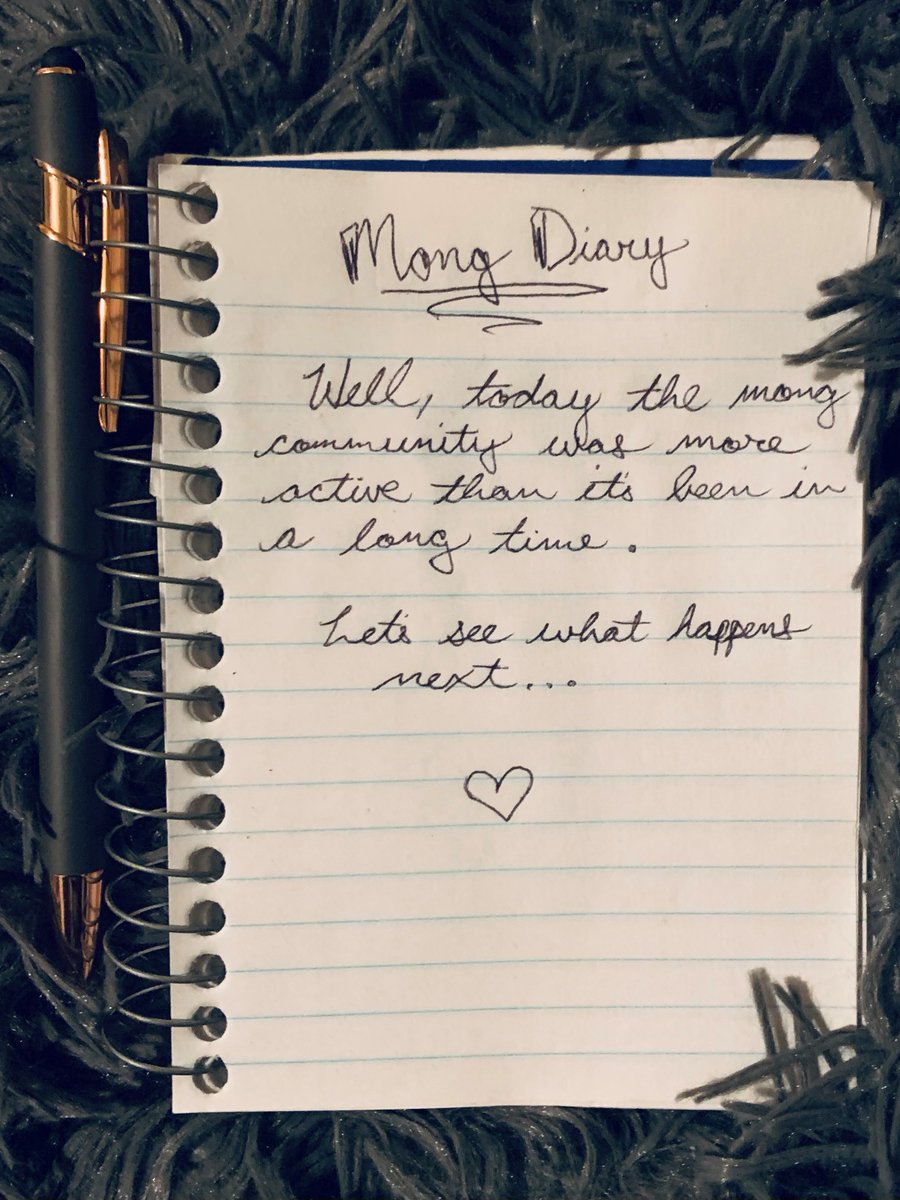 Mong Diary
Well, today the mong
community was more
active than it's been in
a long time.
Let's see what happens
next...